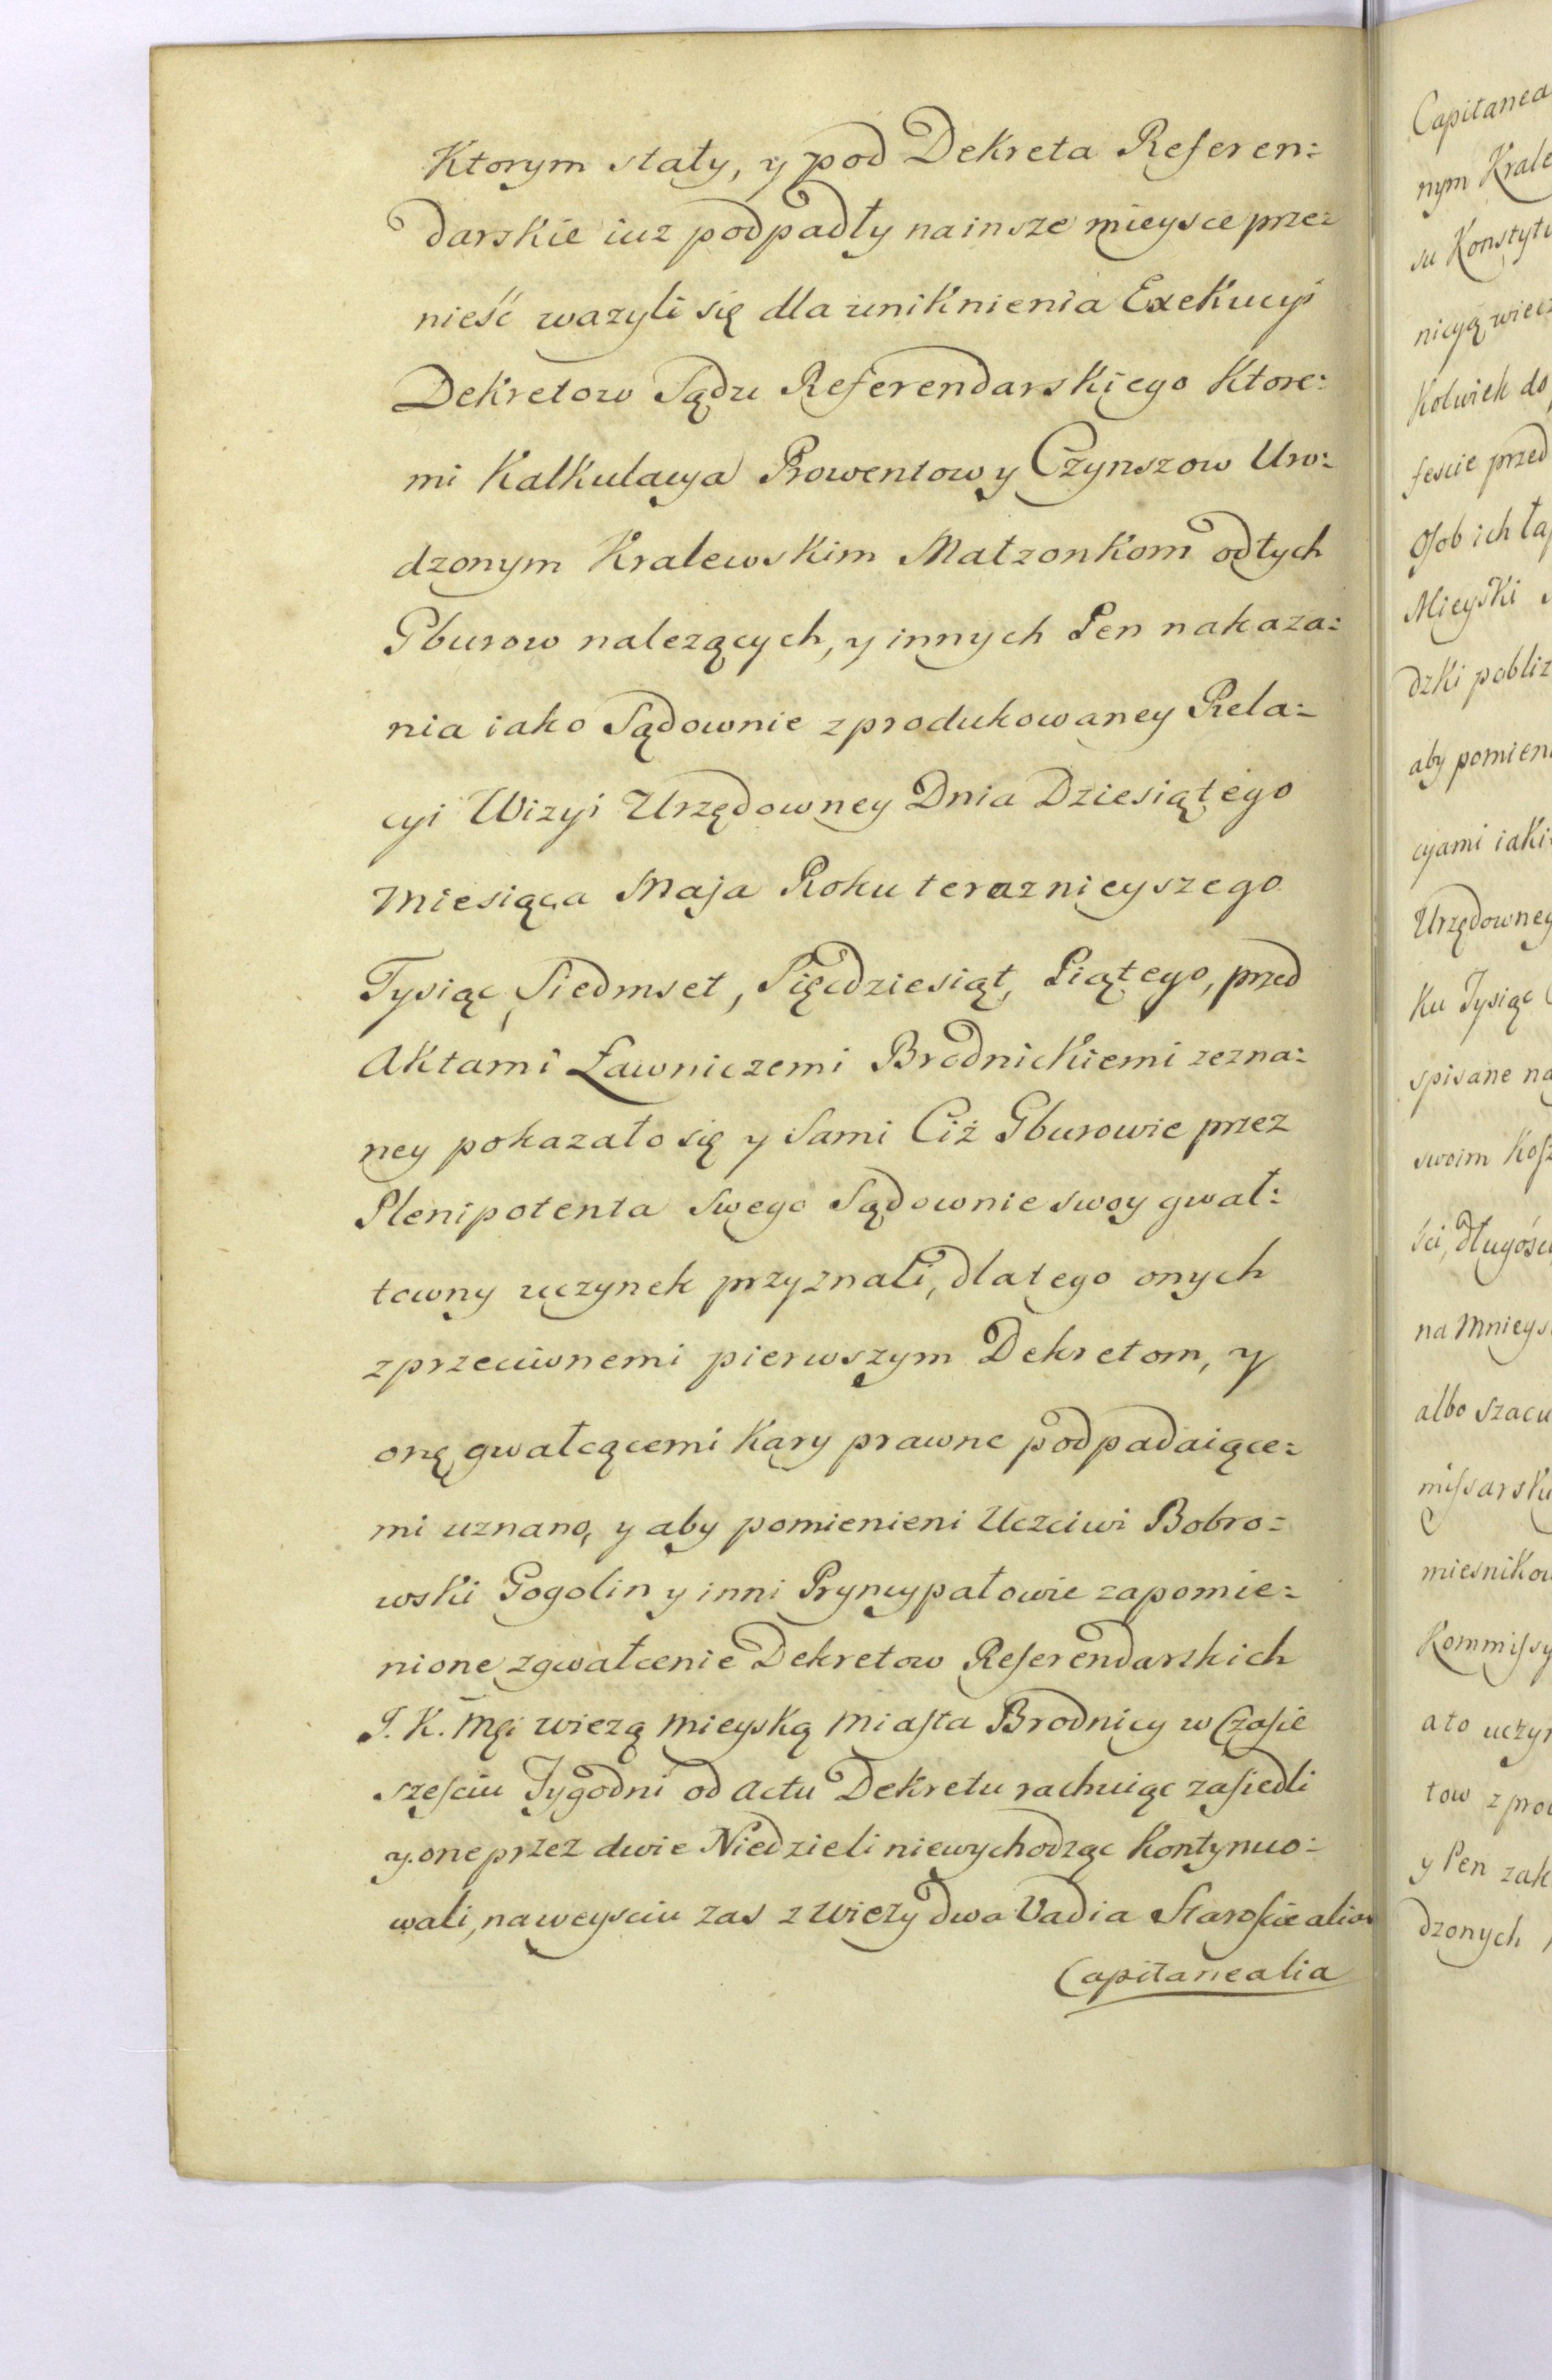 Ktorym stały, y pod Dekreta Referen:
darskie iuz podpadły na insze mieysce prze:
nieść wazyli się dla uniknienia Exekucyi
Dekretow Sądu Referendarskiego Ktore:
mi Kalkulacya Prowentow y Czynszow Uro:
dzonym Kralewskim Małzonkom od tych
Gburow nalezących, y innych Pen nakaza:
nia iako Sądownie zprodukowaney Rela:
cyi Wizyi Urzędowney Dnia Dziesiątego
Miesiąca Maja Roku teraznieyszego
Tysiąc Siedmset, Pięcdziesiąt, Piątego, przed
Aktami Ławniczemi Brodnickiemi zezna:
ney pokazało się y Sami Ciż Gburowie przez
Plenipotenta Swego Sądownie swoy gwał:
towny uczynek przyznali, dlatego onych
zprzeciwnemi pierwszym Dekretom, y
onę gwałcącemi Kary prawne podpadaiące:
mi uznano, y aby pomienieni Uczciwi Bobro:
wski Gogolin y inni Pryncypałowie zapomie:
nione zgwałcenie Dekretow Referendarskich
J. K. Mci wiezą Mieyską Miasta Brodnicy w Czasie
szesciu Tygodni od Actu Dekretu rachuiąc zasiedli
y one przez dwie Niedzieli niewychodząc kontynuo:
wali, na weysciu zas z Wiezy dwa Vadia Staroscie alias
Capitanealia
Capitanea
nym Krale
su Konstytu
nicyą wiecz
Kolwiek do
fescie przed
Osob ich
Mieyski
dzki pobliz
aby pomieni
cyami iaki:
Urzędowney
Ku Tysiąc
spisane na
swoim Kosz
ści, długości
na Mnieys
albo szacu
missarsku
miesnikow
Kommissy
a to uczyn
tow z prow
y Pen zak
dzonych